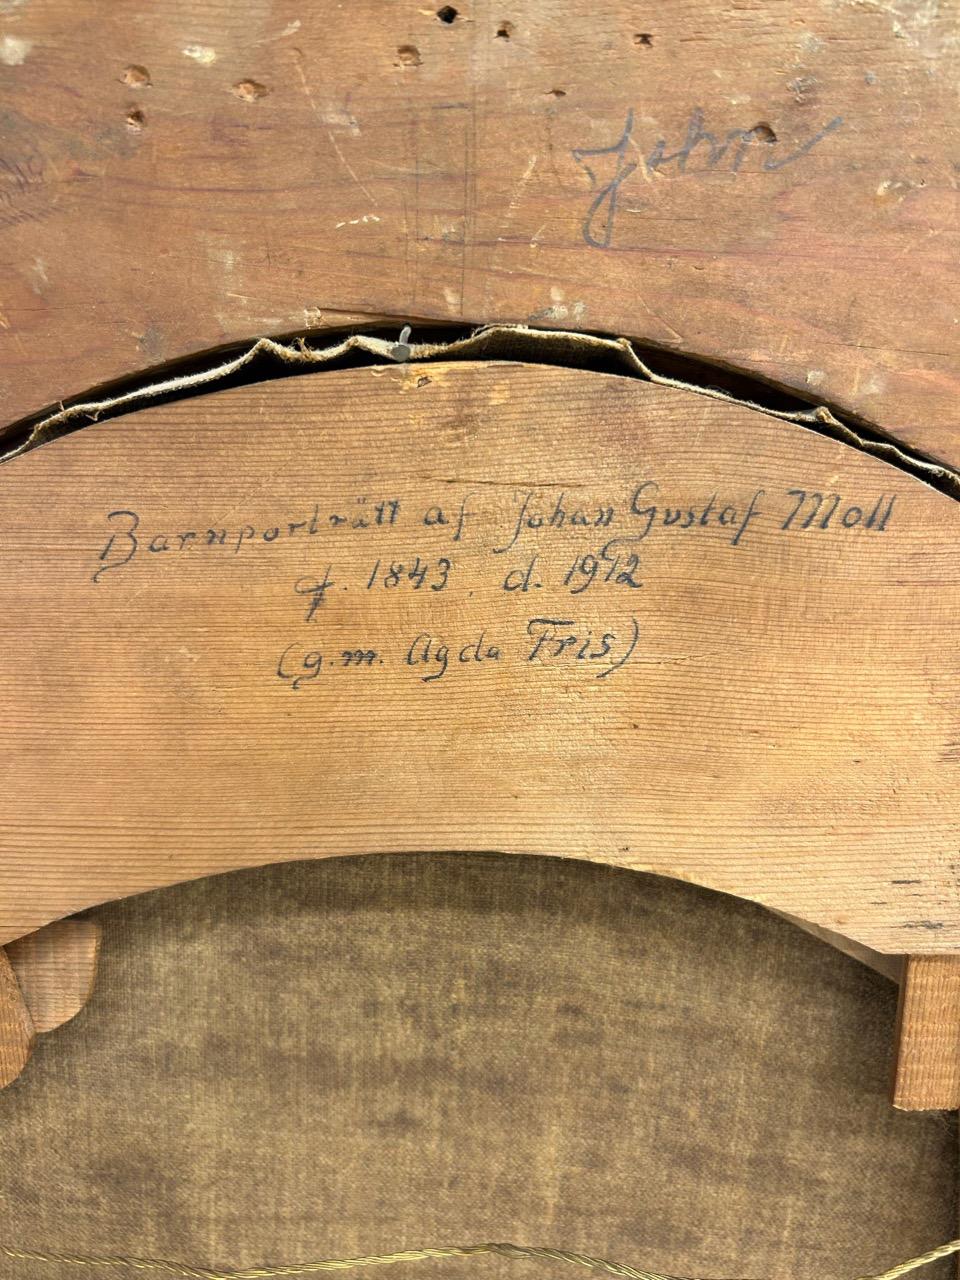 John
Barnporträtt af Johan Gustaf Moll
f. 1843, d. 1912
(g.m. Agda Fris)